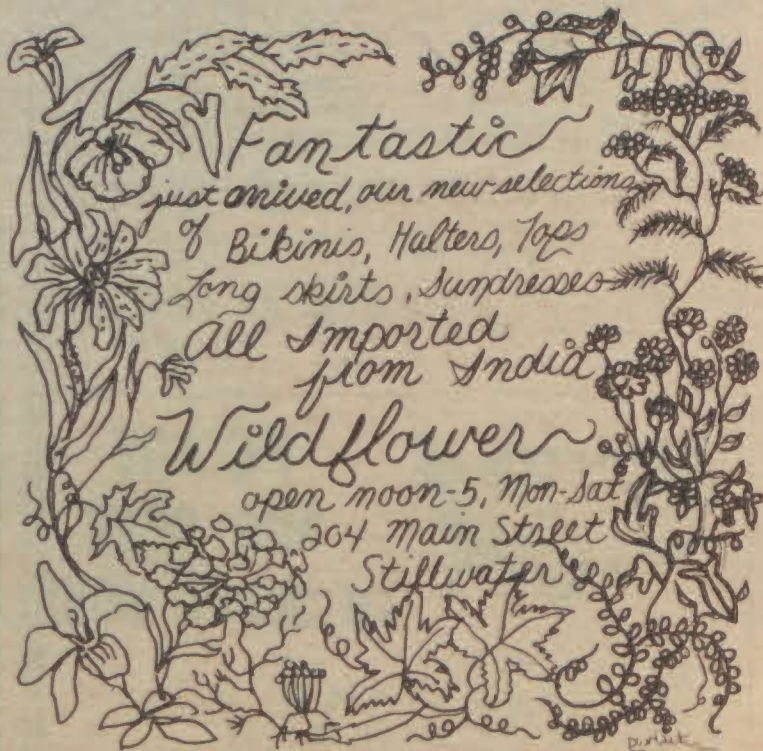 Fantastic
just arrived, our new selections
of Bikinis, Halters, Tops
Long skirts, Sundresses
All Imported
from India
Wildflower
open noon-5, Mon-Sat
204 Main Street
Stillwater